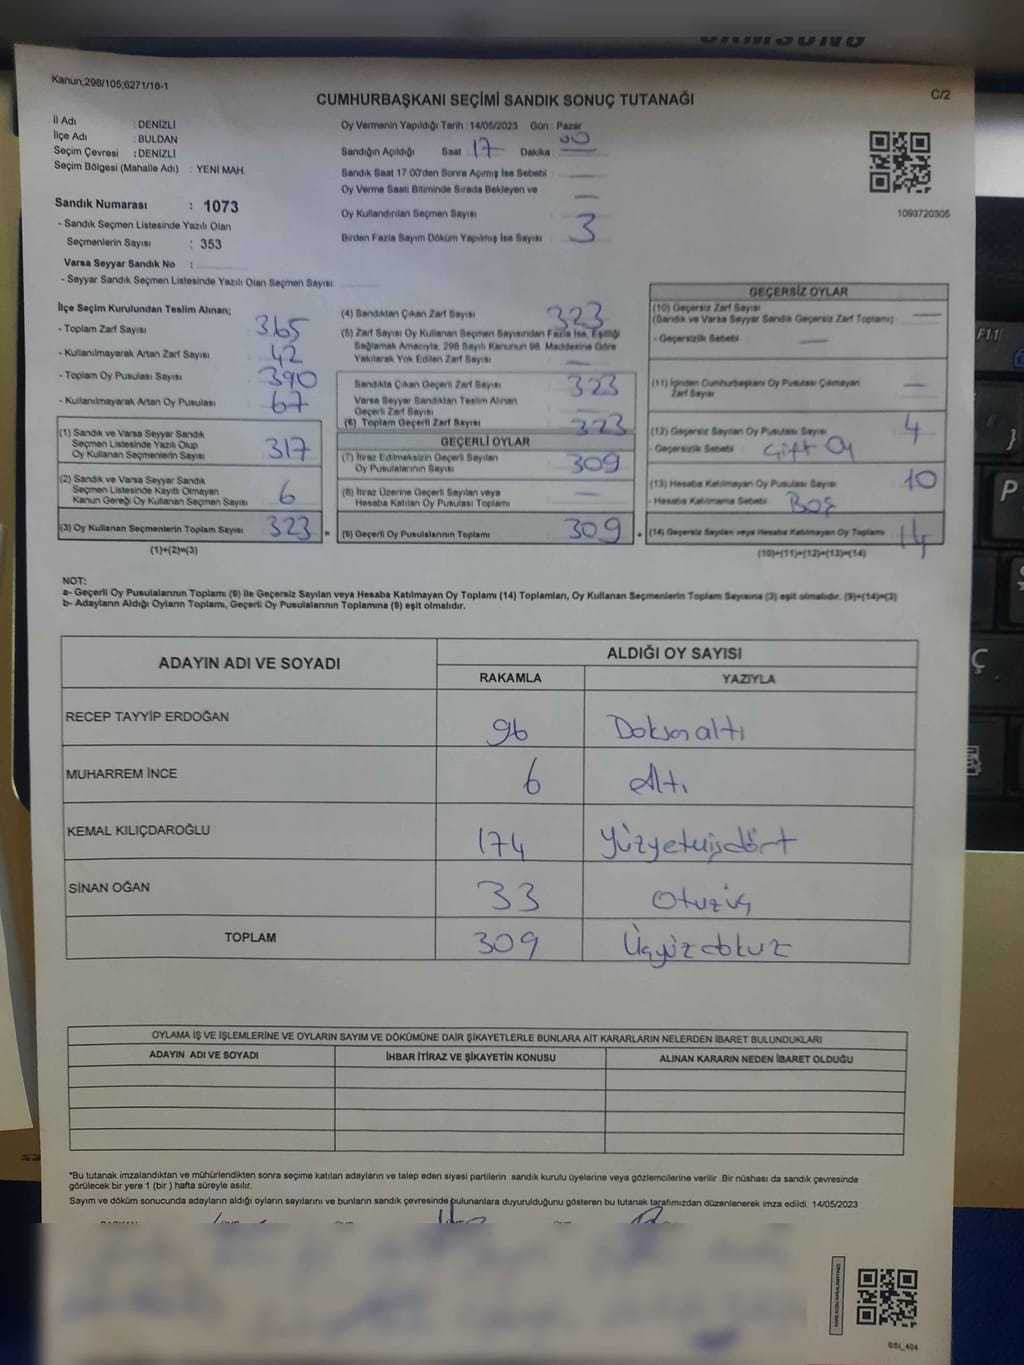 SAMSUNG
Kanun;298/105;6271/18-1
C/2
CUMHURBAŞKANI SEÇİMİ SANDIK SONUÇ TUTANAĞI
İl Adı : DENİZLİ
İlçe Adı : BULDAN
Seçim Çevresi : DENİZLİ
Seçim Bölgesi (Mahalle Adı) : YENİ MAH.
Sandık Numarası : 1073
- Sandık Seçmen Listesinde Yazılı Olan
Seçmenlerin Sayısı : 353
Varsa Seyyar Sandık No :
- Seyyar Sandık Seçmen Listesinde Yazılı Olan Seçmen Sayısı:
Oy Vermenin Yapıldığı Tarih : 14/05/2023 Gün : Pazar
Sandığın Açıldığı Saat : 17 Dakika : 00
Sandık Saat 17.00'den Sonra Açımış İse Sebebi : —
Oy Verme Saati Bitiminde Sırada Bekleyen ve
Oy Kullandırılan Seçmen Sayısı : —
Birden Fazla Sayım Döküm Yapılmış İse Sayısı : 3
1093720305
İlçe Seçim Kurulundan Teslim Alınan;
- Toplam Zarf Sayısı : 365
- Kullanılmayarak Artan Zarf Sayısı : 42
- Toplam Oy Pusulası Sayısı : 390
- Kullanılmayarak Artan Oy Pusulası : 67
(1) Sandık ve Varsa Seyyar Sandık
Seçmen Listesinde Yazılı Olup
Oy Kullanan Seçmenlerin Sayısı 317
(2) Sandık ve Varsa Seyyar Sandık
Seçmen Listesinde Kayıtlı Olmayan
Kanun Gereği Oy Kullanan Seçmen Sayısı 6
(3) Oy Kullanan Seçmenlerin Toplam Sayısı 323 =
(1)+(2)=(3)
(4) Sandıktan Çıkan Zarf Sayısı : 323
(5) Zarf Sayısı Oy Kullanan Seçmen Sayısından Fazla İse, Eşitliği
Sağlamak Amacıyla, 298 Sayılı Kanunun 98. Maddesine Göre
Yakılarak Yok Edilen Zarf Sayısı : —
Sandıkta Çıkan Geçerli Zarf Sayısı 323
Varsa Seyyar Sandıktan Teslim Alınan
Geçerli Zarf Sayısı —
(6) Toplam Geçerli Zarf Sayısı 323
GEÇERLİ OYLAR
(7) İtiraz Edilmeksizin Geçerli Sayılan
Oy Pusulalarının Sayısı 309
(8) İtiraz Üzerine Geçerli Sayılan veya
Hesaba Katılan Oy Pusulaları Toplamı —
(9) Geçerli Oy Pusulalarının Toplamı 309 +
GEÇERSİZ OYLAR
(10) Geçersiz Zarf Sayısı
(Sandık ve Varsa Seyyar Sandık Geçersiz Zarf Toplamı) : —
- Geçersizlik Sebebi : —
(11) İçinden Cumhurbaşkanı Oy Pusulası Çıkmayan
Zarf Sayısı : —
(12) Geçersiz Sayılan Oy Pusulası Sayısı : 4
- Geçersizlik Sebebi : Çift Oy
(13) Hesaba Katılmayan Oy Pusulası Sayısı : 10
- Hesaba Katılmama Sebebi : Boş
(14) Geçersiz Sayılan veya Hesaba Katılmayan Oy Toplamı 14
(10)+(11)+(12)+(13)=(14)
NOT:
a- Geçerli Oy Pusulalarının Toplamı (9) ile Geçersiz Sayılan veya Hesaba Katılmayan Oy Toplamı (14) Toplamları, Oy Kullanan Seçmenlerin Toplam Sayısına (3) eşit olmalıdır. (9)+(14)=(3)
b- Adayların Aldığı Oyların Toplamı, Geçerli Oy Pusulalarının Toplamına (9) eşit olmalıdır.
ADAYIN ADI VE SOYADI
ALDIĞI OY SAYISI
RAKAMLA YAZIYLA
RECEP TAYYİP ERDOĞAN 96 Doksanaltı
MUHARREM İNCE 6 Altı
KEMAL KILIÇDAROĞLU 174 Yüzyetmişdört
SİNAN OĞAN 33 Otuzüç
TOPLAM 309 Üçyüzdokuz
OYLAMA İŞ VE İŞLEMLERİNE VE OYLARIN SAYIM VE DÖKÜMÜNE DAİR ŞİKAYETLERLE BUNLARA AİT KARARLARIN NELERDEN İBARET BULUNDUKLARI
ADAYIN ADI VE SOYADI İHBAR İTİRAZ VE ŞİKAYETİN KONUSU ALINAN KARARIN NEDEN İBARET OLDUĞU
*Bu tutanak imzalandıktan ve mühürlendikten sonra seçime katılan adayların ve talep eden siyasi partilerin sandık kurulu üyelerine veya gözlemcilerine verilir. Bir nüshası da sandık çevresinde
görülecek bir yere 1 (bir) hafta süreyle asılır.
Sayım ve döküm sonucunda adayların aldığı oyların sayılarını ve bunların sandık çevresinde bulunanlara duyurulduğunu gösteren bu tutanak tarafımızdan düzenlenerek imza edildi. 14/05/2023
F11
P
Ç